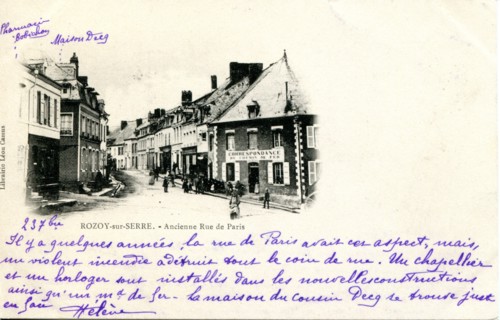 Pharmacie
Bobichon
Maison Decq
Librairie Léon Caron
CORRESPONDANCE
DU CHEMIN DE FER
ROZOY-sur-SERRE. - Ancienne Rue de Paris
23 7bre
Il y a quelques années la rue de Paris avait cet aspect, mais,
un violent incendie a détruit tout le coin de rue. Un chapellier
et un horloger sont installés dans les nouvelles constructions
ainsi qu'un md de fer - la maison du cousin Decq se trouve juste
en face Hélène